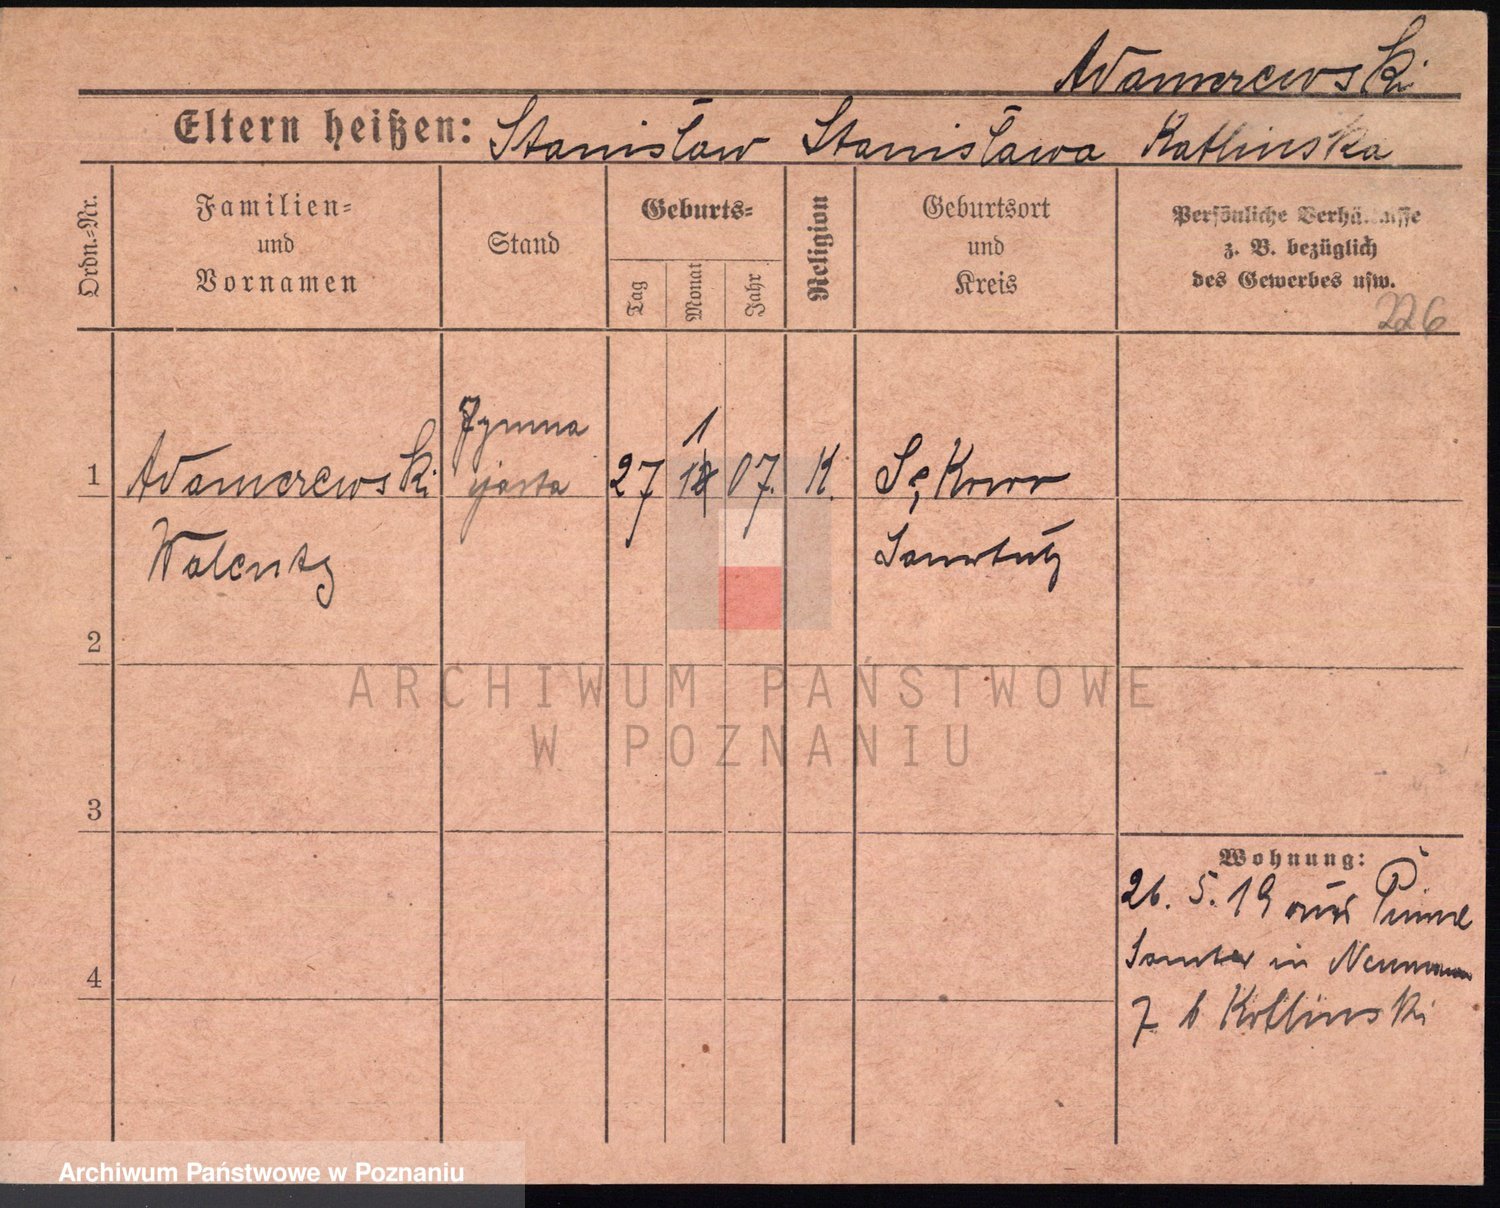 Adamczewski
Eltern heißen: Stanisław Stanisława Kotlinska
Ordn.-Nr.
Familien-
und
Vornamen
Stand
Geburts-
Tag
Monat
Jahr
Religion
Geburtsort
und
Kreis
Persönliche Verhältnisse
z. B. bezüglich
des Gewerbes usw.
226
1
1 Adamczewski 27 12 07. K. Sękowo
Walenty
2
3
4
Wohnung:
26. 5. 19 aus Pinne
Samter in Neumann
7 b Kotlinski
ARCHIWUM PAŃSTWOWE
W POZNANIU
Archiwum Państwowe w Poznaniu